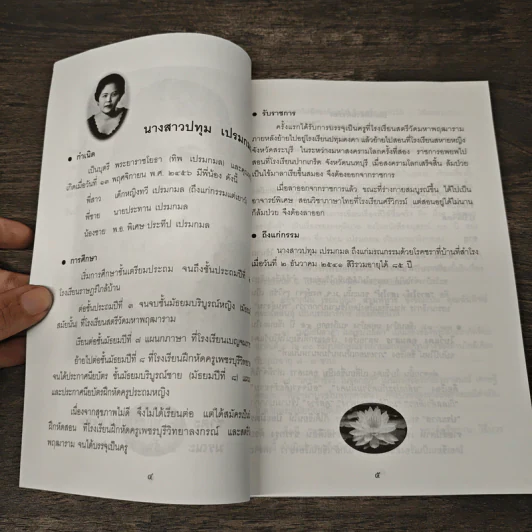 นางสาวปทุม เปรมกมล
● กำเนิด
เป็นบุตรี พระยาราชโยธา (ทิพ เปรมกมล) และคุณ
เกิดเมื่อวันที่ ๑๑ พฤศจิกายน พ.ศ. ๒๔๕๖ มีพี่น้อง ดังนี้
พี่สาว เด็กหญิงทวี เปรมกมล (ถึงแก่กรรมแต่เยาว์)
พี่ชาย นายประทาน เปรมกมล
น้องชาย พ.อ. พิเศษ ประทีป เปรมกมล
● การศึกษา
เริ่มการศึกษาชั้นเตรียมประถม จนถึงชั้นประถมปีที่
โรงเรียนราษฎร์ใกล้บ้าน
ต่อชั้นประถมปีที่ ๓ จนจบชั้นมัธยมบริบูรณ์หญิง
สมัยนั้น ที่โรงเรียนสตรีวัดมหาพฤฒาราม
เรียนต่อชั้นมัธยมปีที่ ๗ แผนกภาษา ที่โรงเรียน
ย้ายไปต่อชั้นมัธยมปีที่ ๘ ที่โรงเรียนฝึกหัดครูเพชรบุรีวิทยา
จนได้ประกาศนียบัตร ชั้นมัธยมบริบูรณ์ชาย (มัธยมปีที่ ๘)
และประกาศนียบัตรฝึกหัดครูประถมหญิง
เนื่องจากสุขภาพไม่ดี จึงไม่ได้เรียนต่อ แต่ได้สมัครเป็น
ฝึกหัดสอน ที่โรงเรียนฝึกหัดครูเพชรบุรีวิทยาลงกรณ์ และสตรี
พฤฒาราม จนได้บรรจุเป็นครู
๔
● รับราชการ
ครั้งแรกได้รับการบรรจุเป็นครูที่โรงเรียนสตรีวัดมหาพฤฒาราม
ภายหลังย้ายไปอยู่โรงเรียนปทุมคงคา แล้วย้ายไปสอนที่โรงเรียนสหายหญิง
จังหวัดสระบุรี ในระหว่างมหาสงครามโลกครั้งที่สอง ราชการอพยพไป
สอนที่โรงเรียนปากเกร็ด จังหวัดนนทบุรี เมื่อสงครามโลกเสร็จสิ้น ล้มป่วย
เป็นไข้มาลาเรียขึ้นสมอง จึงต้องออกจากราชการ
เมื่อลาออกจากราชการแล้ว ขณะที่ร่างกายสมบูรณ์ขึ้น ได้ไปเป็น
อาจารย์พิเศษ สอนวิชาภาษาไทยที่โรงเรียนศรีวิกรม์ แต่สอนอยู่ได้ไม่นาน
ก็ล้มป่วย จึงต้องลาออก
● ถึงแก่กรรม
นางสาวปทุม เปรมกมล ถึงแก่มรณกรรมด้วยโรคชราที่บ้านที่สำโรง
เมื่อวันที่ ๒ ธันวาคม ๒๕๔๑ สิริรวมอายุได้ ๘๕ ปี
๕